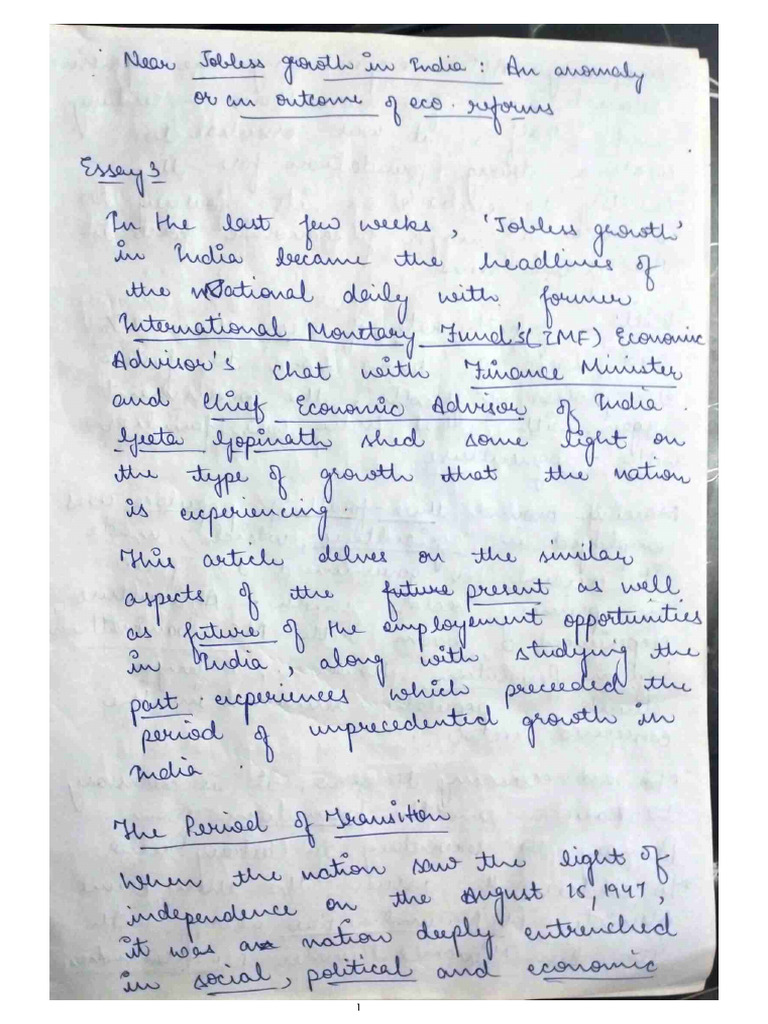 Near Jobless growth in India : An anomaly
or an outcome of eco. reforms
Essay 3
In the last few weeks, 'Jobless growth'
in India became the headlines of
the national daily with former
International Monetary Fund's (IMF) Economic
Advisor's chat with Finance Minister
and Chief Economic Advisor of India.
Geeta Gopinath shed some light on
the type of growth that the nation
is experiencing.
This article delves on the similar
aspects of the future present as well
as future of the employement opportunities
in India, along with studying the
past experiences which preceeded the
period of unprecedented growth in
India.
The Period of Transition
When the nation saw the light of
independence on the August 15, 1947,
it was a nation deeply entrenched
in social, political and economic
1